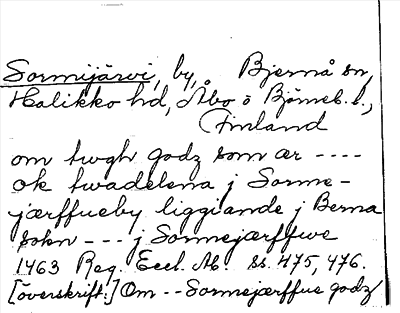 Sormijärvi, by, Bjernå sn,
Halikko hd, Åbo o Björneb. l.,
Finland
om twgh godz som ær ----
ok twadelena j Sorme-
jærffueby liggiande j Berna
sokn --- j Sormejærffwe
1463 Reg. Eccl. Ab. ss. 475, 476.
[överskrift:] Om -- Sormejærffue godz